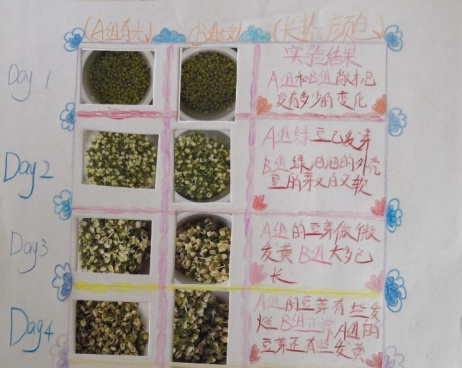 (A组有光)
(B组无光)
(长势颜色)
Day 1
实验结果
A组和B组敝和
没有多少的变化
Day2
A组绿豆已发芽
B组绿豆的外壳
里的芽又白又软
Day3
A组的豆芽微微
发黄B组大多已
长
Day4
A组的豆芽有些发
烂B组正常A组的
豆芽还有些发黄